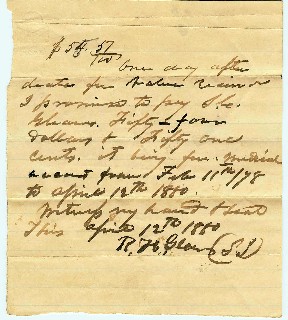 $54 51/100
One day after
date for Value Recevd
I promise to pay
Gleaves. Fifty-four
dollars & Fifty one
cents. it being for medical
account from Feb 11th/78
to April 12th 1880.
Witness my hand & Seal
This April 12th 1880
R. H.